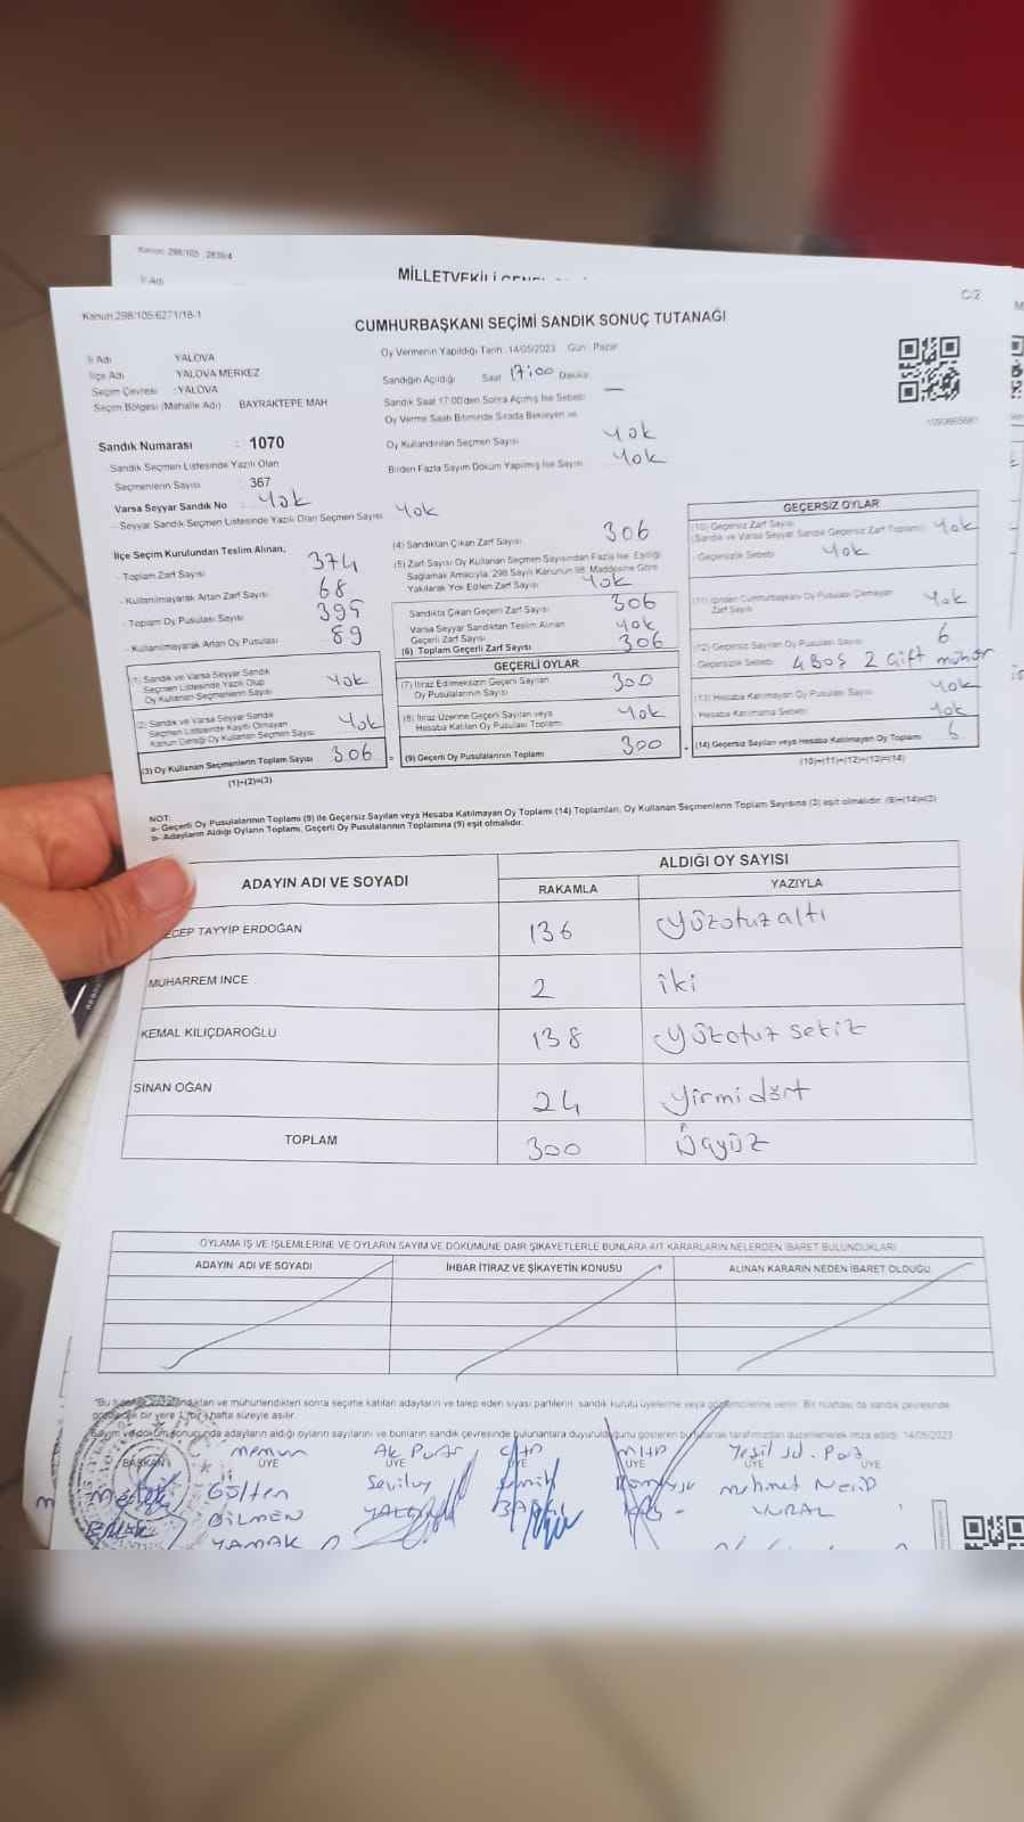 Kanun: 298/105
MİLLETVEKİLİ
İl Adı
C/2
Kanun:298/105-6271/18-1
CUMHURBAŞKANI SEÇİMİ SANDIK SONUÇ TUTANAĞI
İl Adı YALOVA
İlçe Adı YALOVA MERKEZ
Seçim Çevresi :YALOVA
Seçim Bölgesi (Mahalle Adı) BAYRAKTEPE MAH
Oy Vermenin Yapıldığı Tarih :14/05/2023 Gün : Pazar
Sandığın Açıldığı Saat 17:00 Dakika
Sandık Saat 17:00'den Sonra Açılmış İse Sebebi —
Oy Verme Saati Bitiminde Sırada Bekleyen ve
Oy Kullandırılan Seçmen Sayısı yok
Birden Fazla Sayım Döküm Yapılmış İse Sayısı yok
Sandık Numarası : 1070
Sandık Seçmen Listesinde Yazılı Olan
Seçmenlerin Sayısı : 367
Varsa Seyyar Sandık No : yok
- Seyyar Sandık Seçmen Listesinde Yazılı Olan Seçmen Sayısı yok
İlçe Seçim Kurulundan Teslim Alınan;
- Toplam Zarf Sayısı 374
- Kullanılmayarak Artan Zarf Sayısı 68
- Toplam Oy Pusulası Sayısı 395
- Kullanılmayarak Artan Oy Pusulası 89
(1) Sandık ve Varsa Seyyar Sandık
Seçmen Listesinde Yazılı Olup
Oy Kullanan Seçmenlerin Sayısı yok
(2) Sandık ve Varsa Seyyar Sandık
Seçmen Listesinde Kaydı Olmayan
Kanun Gereği Oy Kullanan Seçmen Sayısı yok
(3) Oy Kullanan Seçmenlerin Toplam Sayısı 306
(1)+(2)=(3)
(4) Sandıktan Çıkan Zarf Sayısı 306
(5) Zarf Sayısı Oy Kullanan Seçmen Sayısından Fazla İse, Eşitliği
Sağlamak Amacıyla, 298 Sayılı Kanunun 98. Maddesine Göre
Yakılarak Yok Edilen Zarf Sayısı yok
Sandıkta Çıkan Geçerli Zarf Sayısı 306
Varsa Seyyar Sandıktan Teslim Alınan
Geçerli Zarf Sayısı yok
(6) Toplam Geçerli Zarf Sayısı 306
GEÇERLİ OYLAR
(7) İtiraz Edilmeksizin Geçerli Sayılan
Oy Pusulalarının Sayısı 300
(8) İtiraz Üzerine Geçerli Sayılan veya
Hesaba Katılan Oy Pusulası Toplamı yok
= (9) Geçerli Oy Pusulalarının Toplamı 300
GEÇERSİZ OYLAR
(10) Geçersiz Zarf Sayısı
(Sandık ve Varsa Seyyar Sandık Geçersiz Zarf Toplamı) yok
- Geçersizlik Sebebi yok
(11) İçinden Cumhurbaşkanı Oy Pusulası Çıkmayan
Zarf Sayısı yok
(12) Geçersiz Sayılan Oy Pusulası Sayısı 6
- Geçersizlik Sebebi 4 Boş 2 Çift mühür
(13) Hesaba Katılmayan Oy Pusulası Sayısı yok
- Hesaba Katılmama Sebebi yok
+ (14) Geçersiz Sayılan veya Hesaba Katılmayan Oy Toplamı 6
(10)+(11)+(12)+(13)=(14)
NOT:
a- Geçerli Oy Pusulalarının Toplamı (9) ile Geçersiz Sayılan veya Hesaba Katılmayan Oy Toplamı (14) Toplamları, Oy Kullanan Seçmenlerin Toplam Sayısına (3) eşit olmalıdır. (9)+(14)=(3)
b- Adayların Aldığı Oyların Toplamı, Geçerli Oy Pusulalarının Toplamına (9) eşit olmalıdır.
ADAYIN ADI VE SOYADI ALDIĞI OY SAYISI
RAKAMLA YAZIYLA
ECEP TAYYİP ERDOĞAN 136 yüzotuzaltı
MUHARREM İNCE 2 iki
KEMAL KILIÇDAROĞLU 138 yüzotuz sekiz
SİNAN OĞAN 24 yirmidört
TOPLAM 300 üçyüz
OYLAMA İŞ VE İŞLEMLERİNE VE OYLARIN SAYIM VE DÖKÜMÜNE DAİR ŞİKAYETLERLE BUNLARA AİT KARARLARIN NELERDEN İBARET BULUNDUKLARI
ADAYIN ADI VE SOYADI İHBAR İTİRAZ VE ŞİKAYETİN KONUSU ALINAN KARARIN NEDEN İBARET OLDUĞU
mühürlendikten sonra seçime katılan adayların ve talep eden siyasi partilerin sandık kurulu üyelerine veya gözlemcilerine verilir. Bir nüshası da sandık çevresinde
bir yere 1 (bir) hafta süreyle asılır.
Sayım ve döküm sonucunda adayların aldığı oyların sayılarını ve bunların sandık çevresinde bulunanlara duyurulduğunu gösteren bu tutanak tarafımızdan düzenlenerek imza edildi. 14/05/2023
BAŞKAN memur ÜYE Ak Parti ÜYE CHP ÜYE MHP ÜYE Yeşil Sol. Parti ÜYE ÜYE
Melek Gülten Sevilay Semih mehmet Nedid
BİLMEN VURAL
YAMAK